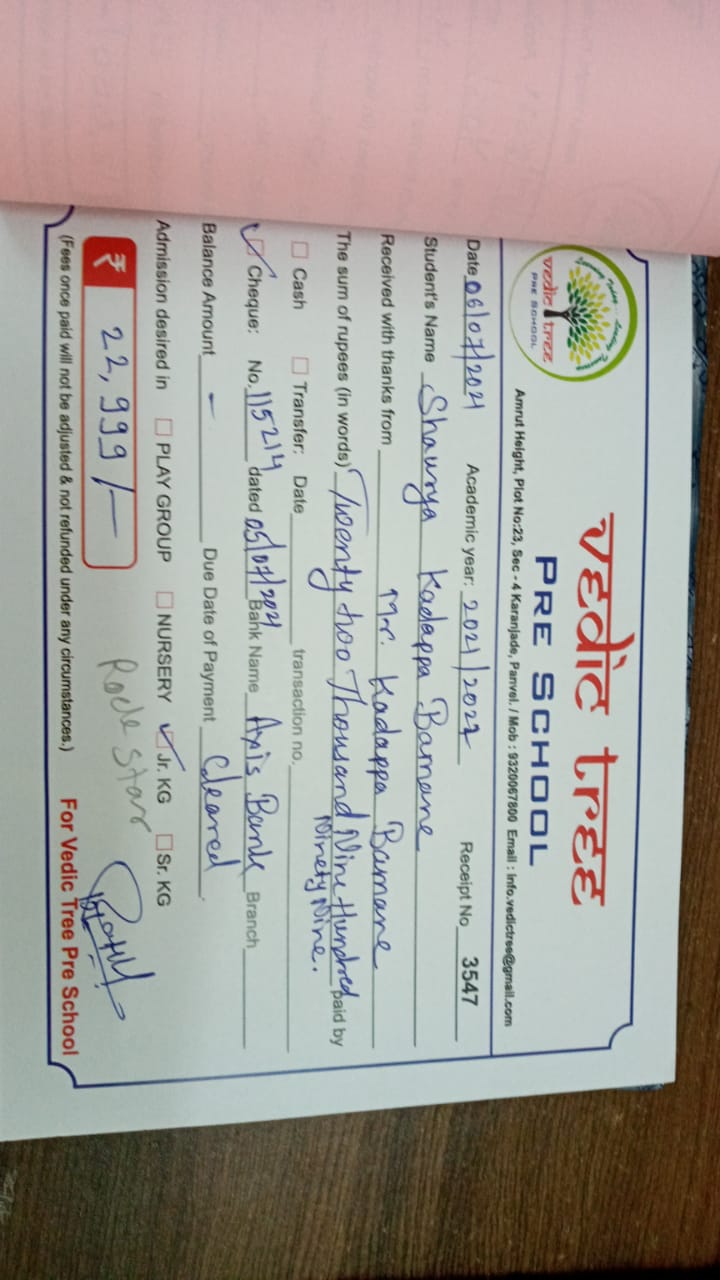 vedic tree
PRE SCHOOL
vedic tree
PRE SCHOOL
Amrut Height, Plot No:23, Sec - 4 Karanjade, Panvel. / Mob : 9320067800 Email : info.vedictree@gmail.com
Date 06/07/2021 Academic year: 2021/2022 Receipt No 3547
Student's Name Shaurya Kadappa Bamane
Received with thanks from Mr. Kadappa Bamane
The sum of rupees (in words) Twenty two Thousand Nine Hundred paid by
Ninety Nine.
Cash Transfer: Date transaction no.
Cheque: No. 115214 dated 05/07/2021 Bank Name Axis Bank Branch
Balance Amount - Due Date of Payment Cleared
Admission desired in PLAY GROUP NURSERY Jr. KG Sr. KG
₹ 22,999/-
(Fees once paid will not be adjusted & not refunded under any circumstances.) For Vedic Tree Pre School